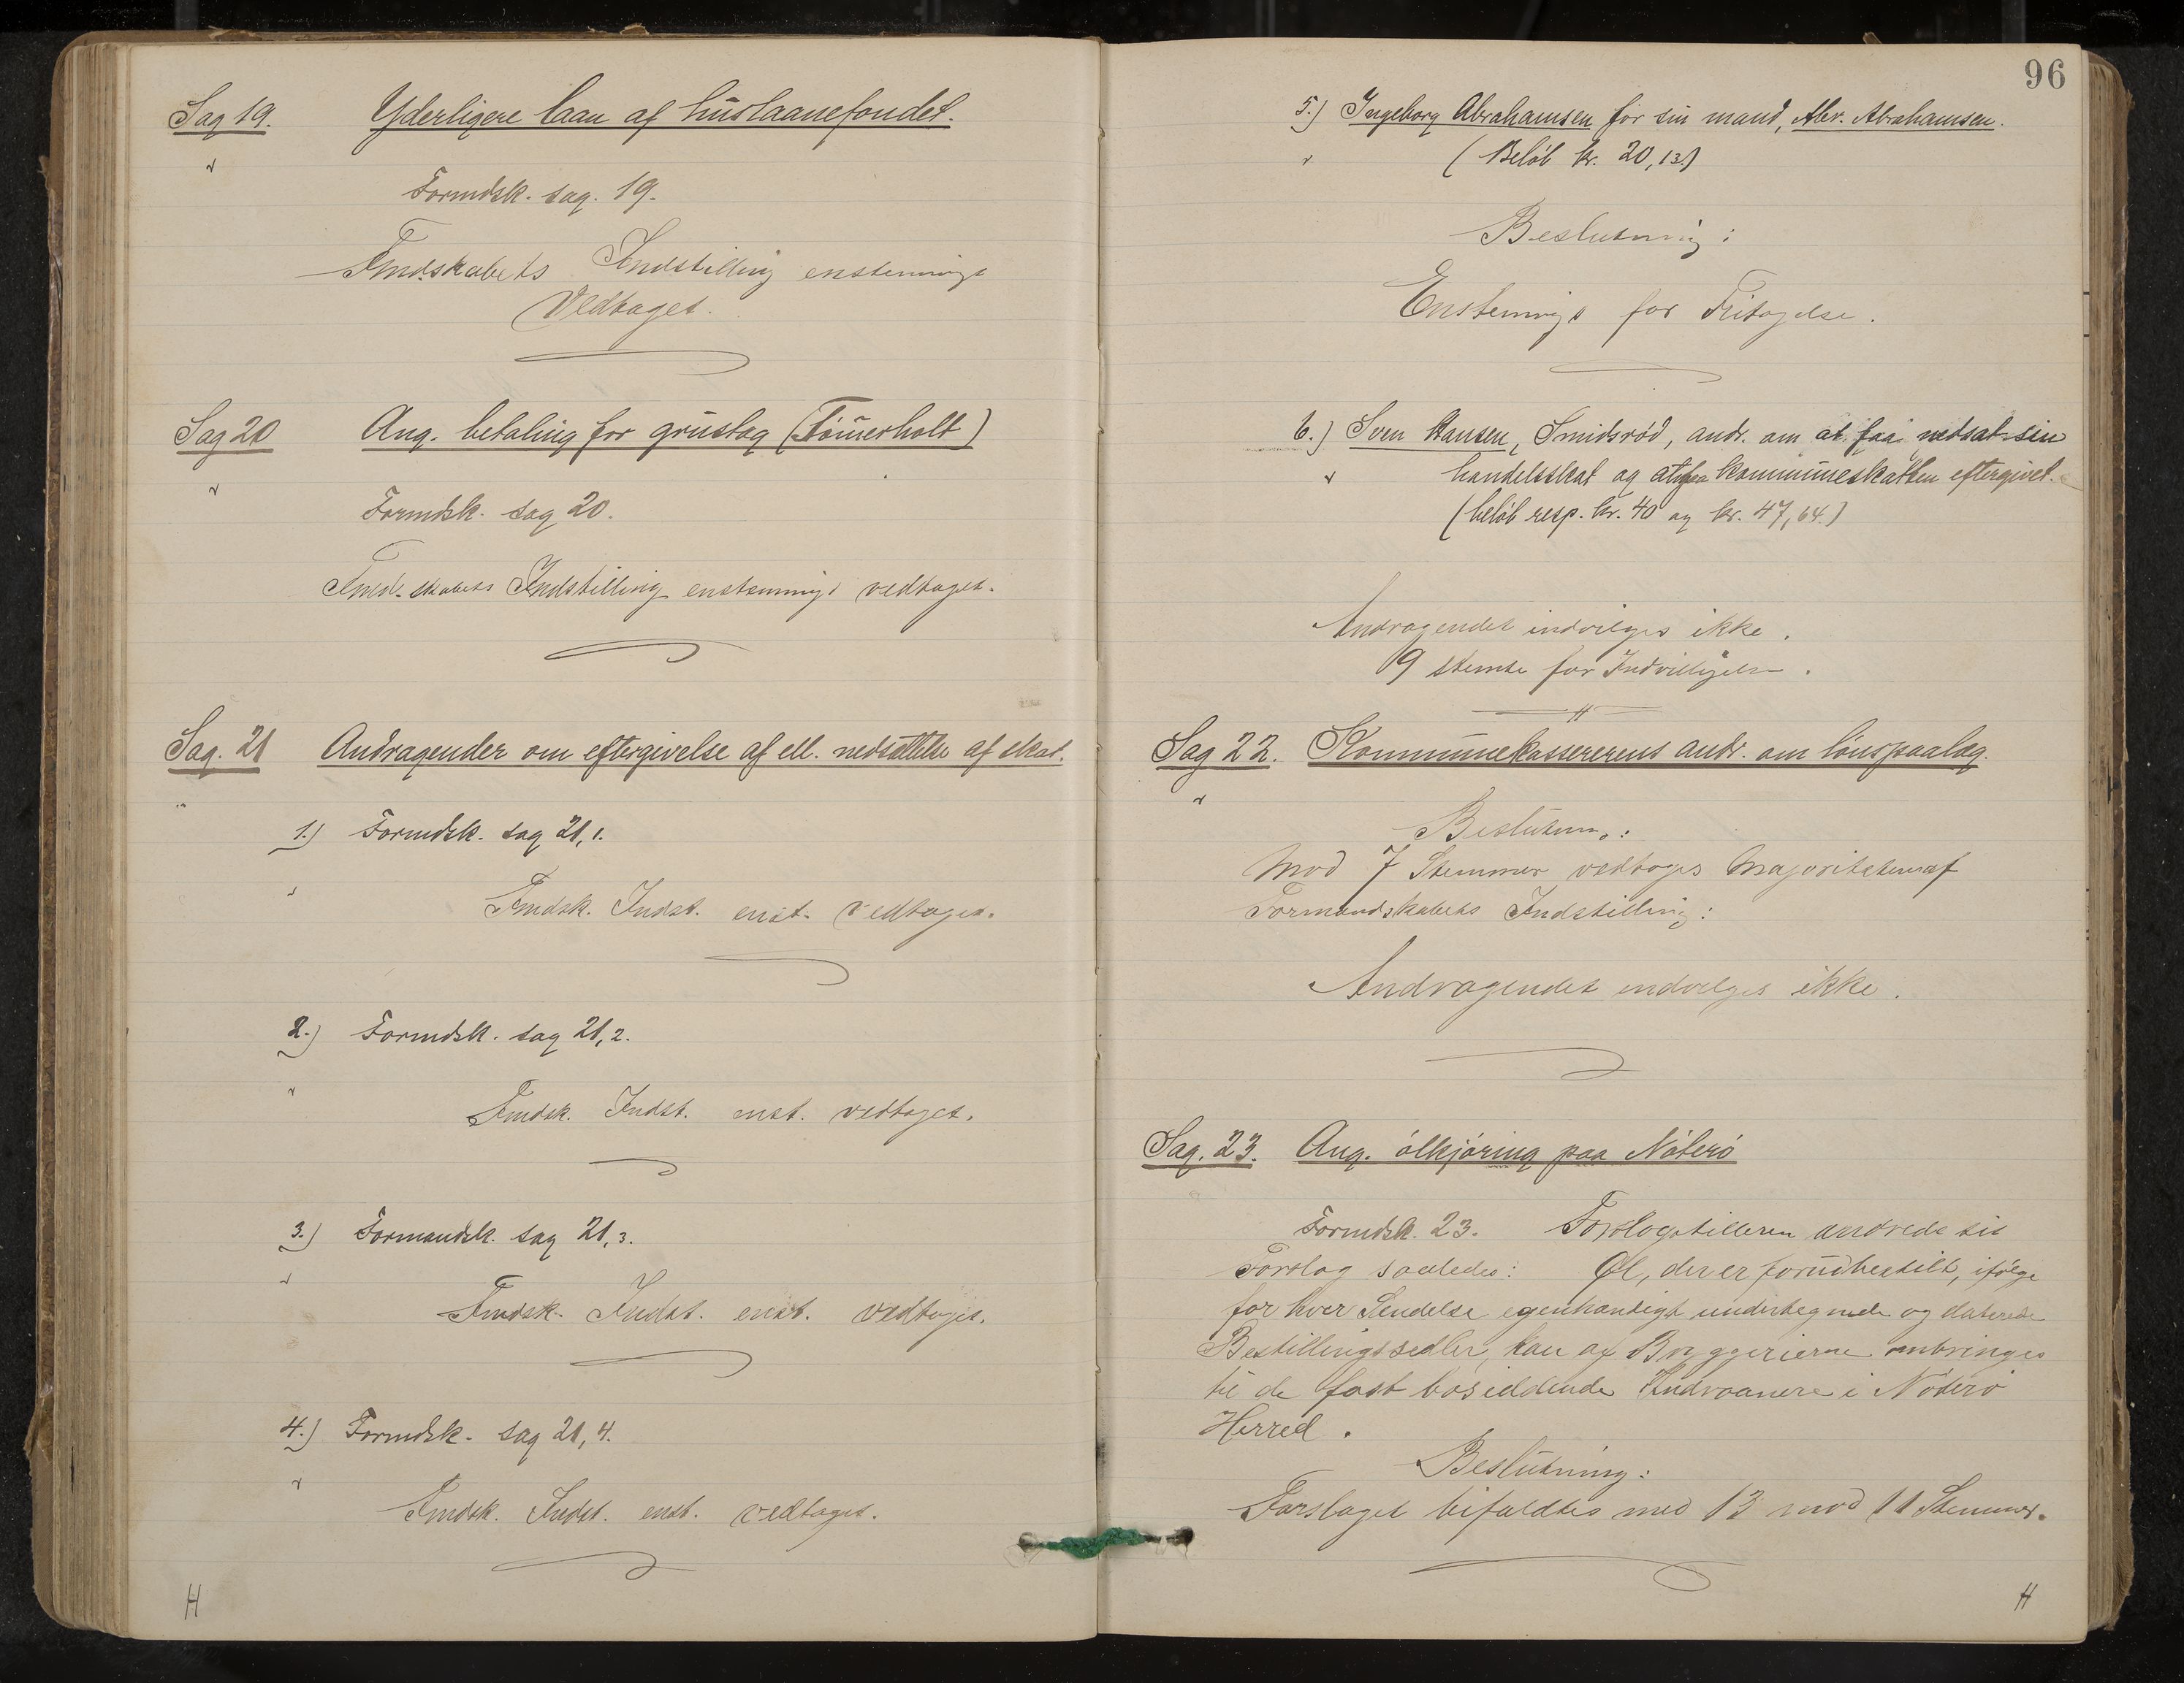 Sag 19. Yderligere laan af huslaanefondet.
Formdsk. sag. 19.
Fmdskabets Indstilling enstemmigt
Vedtaget.
Sag 20 Ang. betaling for grustag (Tømerholt)
Formdsk. sag 20.
Fmdskabets Indstilling enstemmigt vedtaget.
Sag. 21 Andragender om eftergivelse af ell. nedsættelse af skat.
1.) Formdsk. sag 21,1.
Fmdsk. Indst. enst. vedtaget.
2.) Formdsk. sag 21,2.
Fmdsk. Indst. enst. vedtaget.
3.) Formandsk. sag 21,3.
Fmdsk. Indst. enst. vedtaget.
4.) Formdsk. sag 21,4.
Fmdsk. Indst. enst. vedtaget.
H
96
5.) Ingeborg Abrahamsen for sin mand, Abr. Abrahamsen.
(Beløb kr. 20,13.)
Beslutning:
Enstemmigt for Fritagelse.
6.) Sven Hansen, Smidsrød, andr. om at faa nedsat sin
handelsskat og at faa kommuneskatten eftergivet.
(beløb resp. kr. 40 og kr. 47,64.)
Andragendet indvilges ikke.
9 stemte for Indvilligelse.
Sag 22. Kommunekassererens andr. om lønspaalæg.
Beslutn.:
Mod 7 Stemmer vedtoges Majoriteten af
Formandskabets Indstilling:
Andragendet indvilges ikke.
Sag. 23. Ang. ølkjøring paa Nøterø
Formdsk. 23. Forslagstilleren ændrede sit
Forslag saaledes: Øl, der er forudbestilt, ifølge
for hver Sendelse egenhændigt undertegnede og daterede
Bestillingssedler, kan af Bryggerierne ombringes
til de fast bosiddende Indvaanere i Nøterø
Herred.
Beslutning:
Forslaget bifaldtes med 13 mod 11 Stemmer.
H